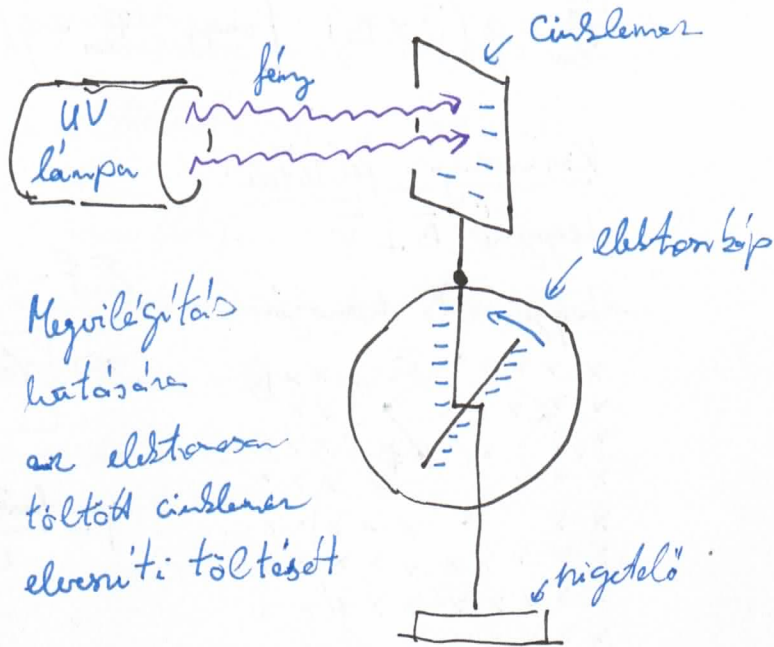 cinklemez
fény
UV
lámpa
elektroszkóp
Megvilágítás
hatására
az elektromosan
töltött cinklemez
elveszíti töltését
szigetelő